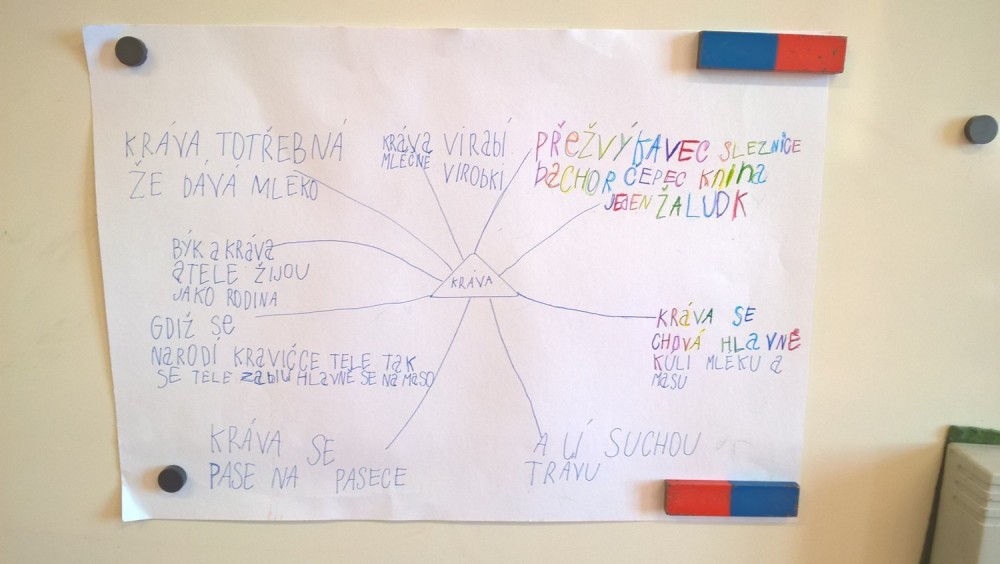 KRÁVA TOTŘEBNÁ
ŽE DÁVÁ MLÉKO
KRÁVA VIRABÍ
MLÉČNÉ VIROBKI
PŘEŽVÝKAVEC SLEZNICE
BACHOR ČEPEC KNIHA
JEDEN ŽALUDK
BÝK a KRÁVa
aTELE ŽIJOU
JAKO RODINA
KRÁVA
GDIŽ SE
NARODÍ KRAVIČCE TELE TAK
SE TELE zabIU HLAVNĚ SE NA MASO
KRÁVA SE
CHOVÁ HLaVNĚ
KULI MLÉKU a
MaSU
KRÁVA SE
PASE NA PASECE
A LÍ SUCHOU
TRÁVU